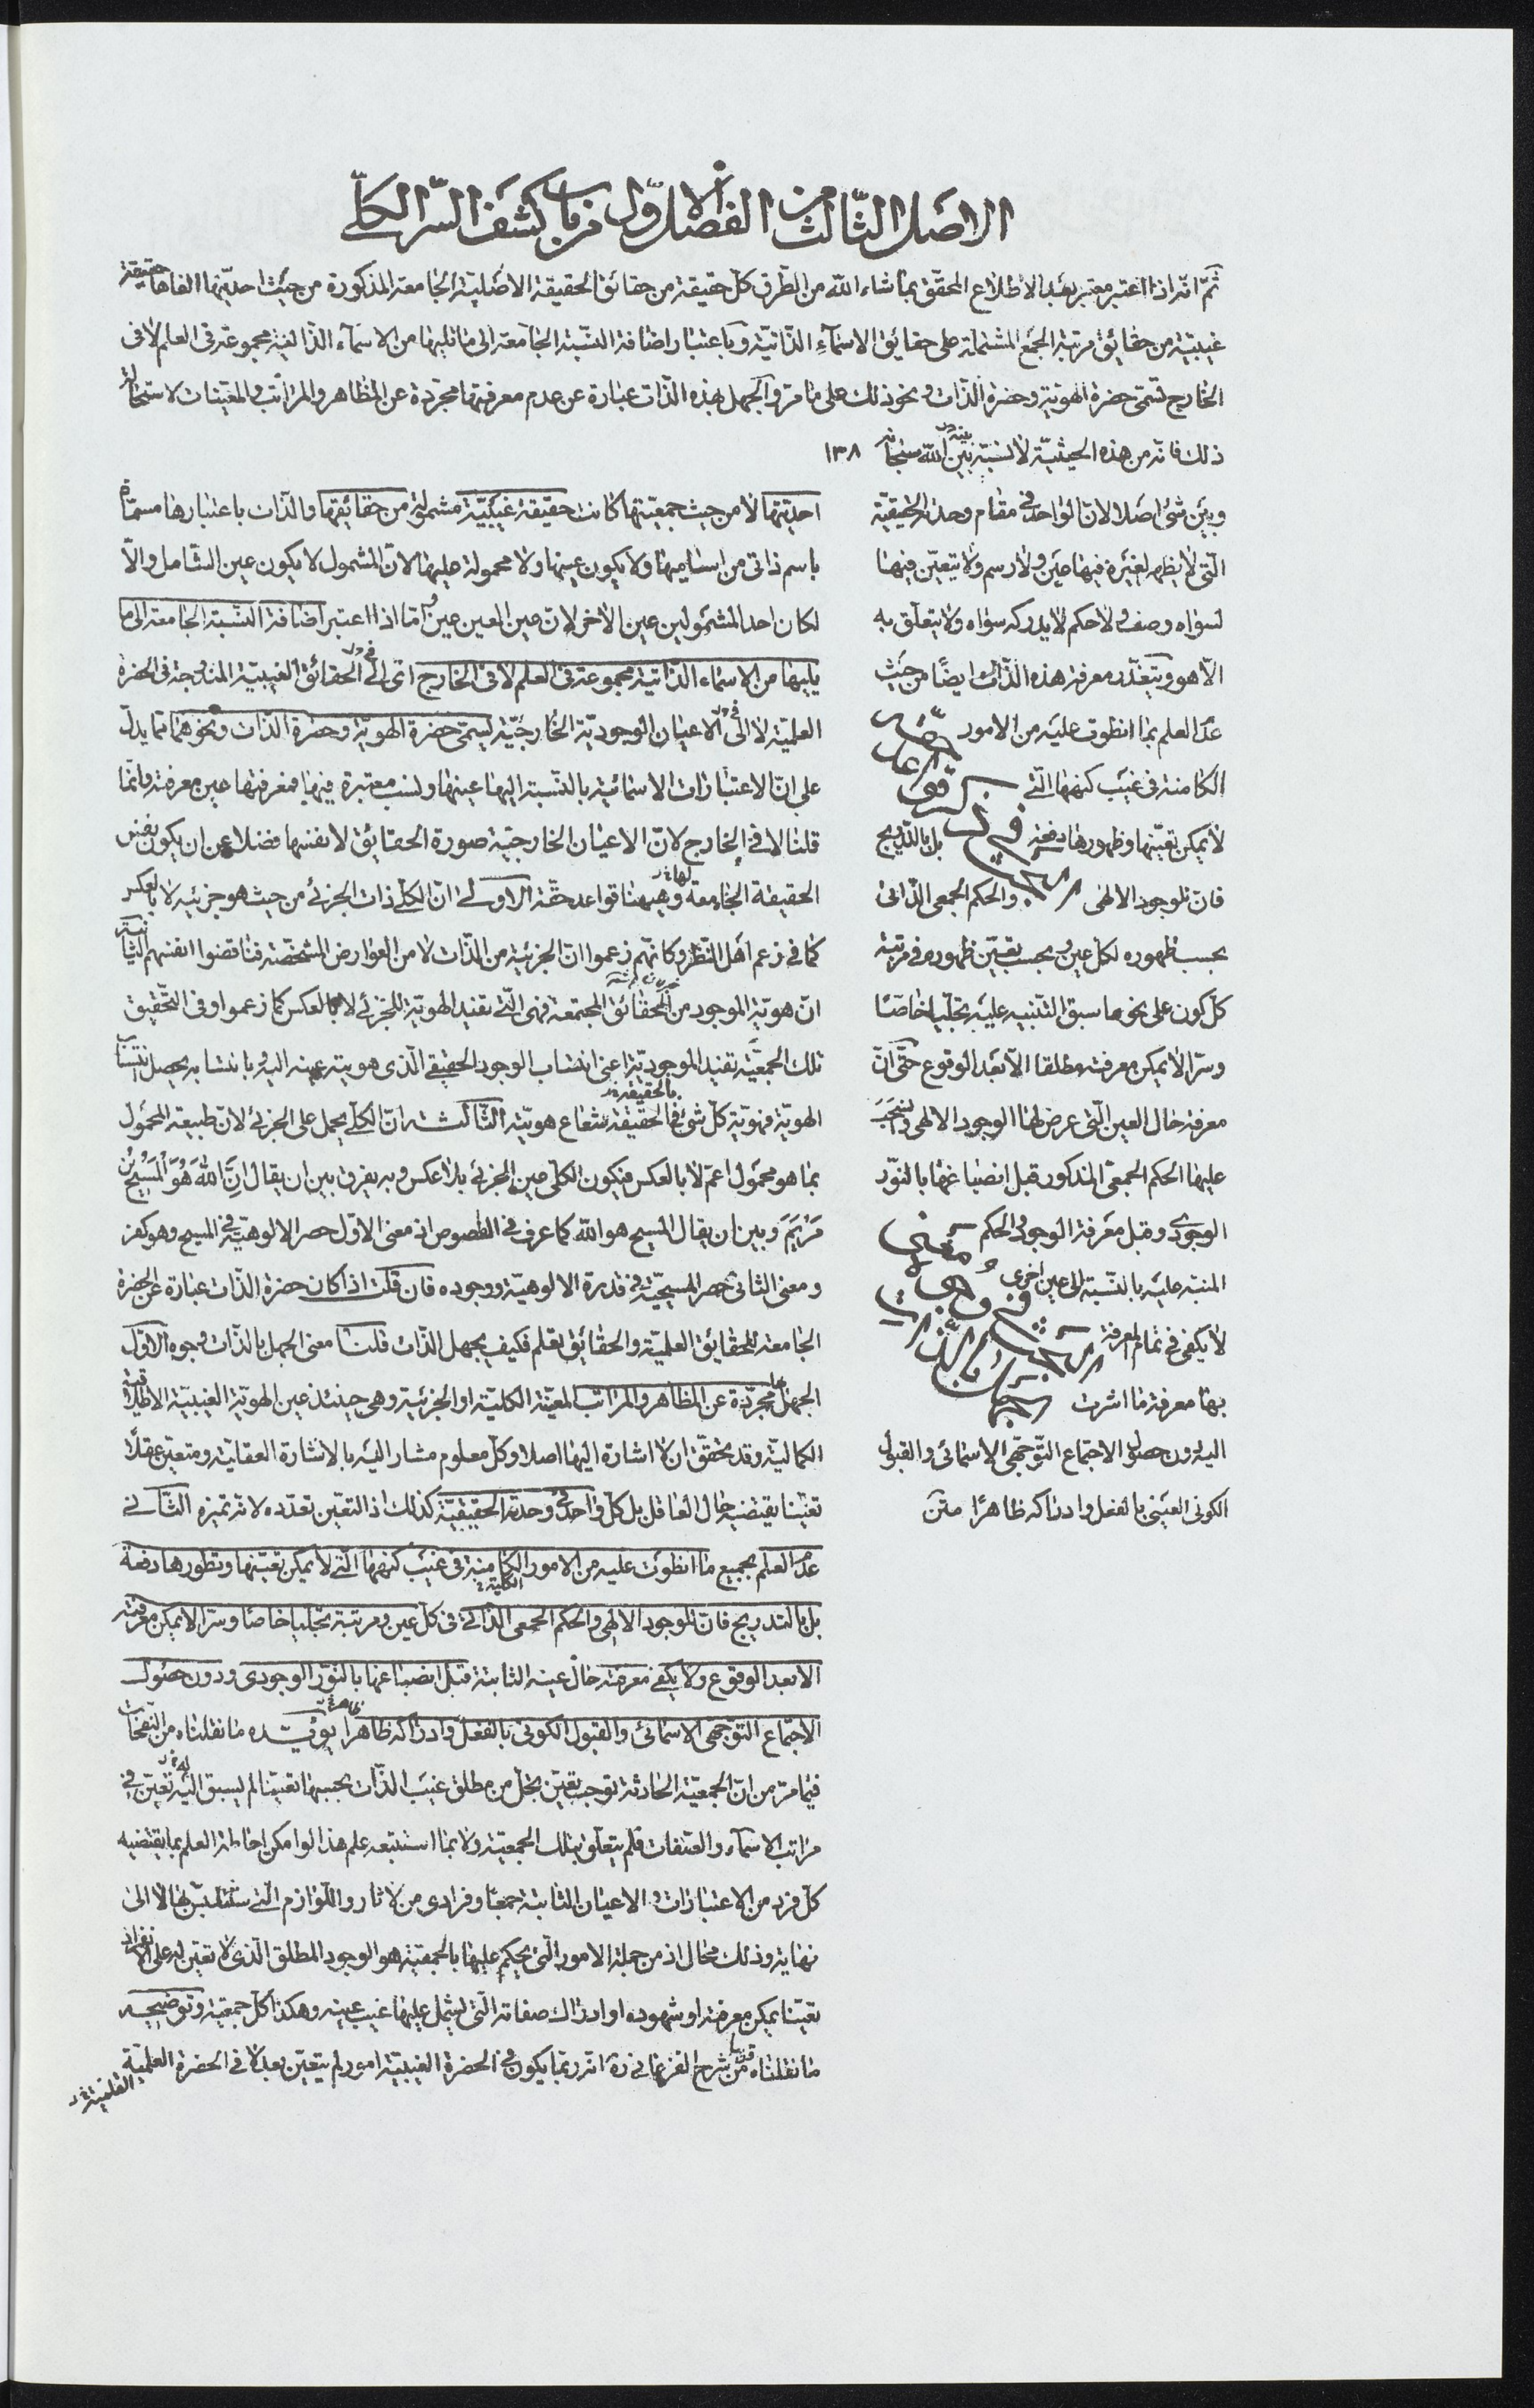 الاصل الثالث من الفصل الاول من باب كشف السر الكلي
ثمّ انّه اذا اعتبر معتبر بعد الاطلاع المحقّق بما شاء الله من الطّرق كلّ حقيقة من حقائق الحقيقة الاصليّة الجامعة المذكورة من حيث احديّتها الفاها حقيقة
غيبيّة من حقائق مرتبة الجمع المشتملة على حقايق الاسماء الذّاتيّة وباعتبار اضافة النّسبة الجامعة الى ما تليها من الاسماء الذّاتية مجموعة فى العلم لا فى
الخارج تسمّى حضرة الهويّة وحضرة الذّات ونحو ذلك على ما مرّ والجهل بهذه الذّات عبارة عن عدم معرفتها مجرّدة عن المظاهر والمراتب والمعيّنات لاستحالة
ذلك فانه من هذه الحيثيّة لا نسبة بين الله سبحانه ١٣٨
وبين شئ اصلا لانّ الواحد فى مقام وحدته الحقيقيّة
الّتى لا يظهر لغيره فيها عين ولا رسم ولا يتعيّن فيها
لسواه وصف ولا حكم لا يدركه سواه ولا يتعلّق به
الّا هو ويتعذّر معرفة هذه الذّات ايضًا من حيث
عدم العلم بما انطوت عليه من الامور
الكامنة فى غيب كنهها الّتى
لا يمكن تعيّنها وظهورها دفعة بل بالتّدريج
فانّ للوجود الالهى والحكم الجمعى الذّاتى
بحسب ظهوره لكل عين وبحسب تعيّن ظهوره فى مرتبة
كلّ كون على نحو ما سبق التّنبيه عليه تجلّيا خاصّا
وسرّا لا يمكن معرفته مطلقا الّا بعد الوقوع حتّى انّ
معرفة حال العين الّتى عرض لها الوجود الالهى وانسحب
عليها الحكم الجمعى المذكور قبل انصباغها بالنّور
الوجودى وقبل معرفة الوجود والحكم
المنبّه عليه بالنّسبة الى عين اخرى
لا يكفى فى تمام المعرفة
بها معرفة ما اشرت
اليه دون حصول الاجتماع التّوجّهى الاسمائى والقبول
الكونى العينى بالفعل وادراكه ظاهرًا متن
احديّتها لا من حيث جمعيّتها كانت حقيقة غيبيّة مشمولة من حقائقها والذّات باعتبارها مسمّاة
باسم ذاتى من اساميها ولا يكون عينها ولا محمولة عليها لانّ المشمول لا يكون عين الشّامل والّا
لكان احد المشمولين عين الاخر لانّ عين العين عين امّا اذا اعتبر اضافة النّسبة الجامعة الى ما
يليها من الاسماء الذّاتية مجموعة فى العلم لا فى الخارج اى الى الحقائق الغيبيّة المندرجة فى الحضرة
العلميّة لا الى الاعيان الوجوديّة الخارجيّة ليسمّى حضرة الهويّة وحضرة الذّات ونحوهما ممّا يدلّ
على انّ الاعتبارات الاسمائية بالنّسبة اليها عينها وليست معتبرة فيها فمعرفتها عين معرفته وانّما
قلنا لا فى الخارج لانّ الاعيان الخارجيّة صورة الحقائق لا نفسها فضلا عن ان يكون نفس
الحقيقة الجامعة لها وهيهنا قواعد حقّة الاولى انّ الكلّى ذات الجزئى من حيث هو جزئيه لا بالعكس
كما فى زعم اهل النّظر وكانّهم زعموا انّ الجزئيّة من الذّات لا من العوارض المشخّصة فناقضوا انفسهم الثانية
انّ هويّة الموجود من الحقائق المجتمعة فهى الّتى تفيد الهويّة للجزئى لا بالعكس كما زعموا وفى التّحقيق
تلك الجمعيّة تفيد الموجوديّة اعنى انتساب الوجود الحقيقى الّذى هويته عينه اليه وبانتسابه يحصل انتساب
الهويّة فهويّة كلّ شئ فى الحقيقة شعاع هويّته الثّالثة انّ الكلّى يحمل على الجزئى لانّ طبيعة المحمول
بما هو محمول اعمّ لا بالعكس فيكون الكلّى عين الجزئى بلا عكس وبه يفرق بين ان يقال انّ الله هو المسيح بن
مريم وبين ان يقال المسيح هو الله كما عرف فى الفصوص اذ معنى الاوّل حصر الالوهيّة فى المسيح وهو كفر
ومعنى الثانى حصر المسيحيّة فى قدرة الالوهيّة ووجوده فان قلت اذا كان حضرة الذّات عبارة عن الحضرة
الجامعة للحقائق العلميّة والحقائق تعلم فكيف يجهل الذّات قلنا معنى الجهل بالذّات وجوه الاوّل
الجهل بها مجرّدة عن المظاهر والمراتب المعيّنة الكليّة او الجزئيّة وهى حينئذ عين الهويّة الغيبيّة الاطلاقيّة
الكماليّة وقد تحقّق ان لا اشارة اليها اصلا وكلّ معلوم مشار اليه بالاشارة العقليّة ومتعيّن عقلًا
تعيّنا يقتضيه حال العاقل بل كلّ واحد فى وحدته الحقيقيّة كذلك اذ التعيّن تعدّده لانه تميّزه الثّانى
عدم العلم بجميع ما انطوت عليه من الامور الكامنة فى غيب كنهها الّتى لا يمكن تعيّنها وتطورها دفعة
بل بالتدريج فانّ للوجود الالهى والحكم الجمعى الذّاتى فى كلّ عين ومرتبة تجلّيا خاصّا وسرّا لا يمكن معرفته
الا بعد الوقوع ولا يكفى معرفة حال عينه الثابتة قبل انصباغها بالنّور الوجودى ودون حصول
الاجتماع التوجّهى الاسمائى والقبول الكونى بالفعل وادراكه ظاهرا يؤيّده ما نقلناه من النّفحات
فيما مرّ من انّ الجمعيّة الحادثة توجب تعيّن تجلّ من مطلق غيب الذّات بحسبها تعيّنا لم يسبق اليه تعيّن فى
مراتب الاسماء والصّفات فلم يتعلّق بتلك الجمعيّة ولا بما استتبعه علم هذا لو امكن احاطة العلم بما يقتضيه
كلّ فرد من الاعتبارات والاعيان الثابتة جمعا وفرادى من الاثار واللّوازم الّتى ستتلبّس بها الا الى
نهاية وذلك محال اذ من جملة الامور الّتى يحكم عليها بالجمعيّة هو الوجود المطلق الّذى لا تعيّن له على الانفراد
تعيّنا يمكن معرفته او شهوده او ادراك صفاته الّتى يشمل عليها غيب عينه وهكذا كلّ جمعيّة وتوضيحه
ما نقلناه من شرح الفرغانى ره انّه ربّما يكون فى الحضرة الغيبيّة امور لم يتعيّن بعد لا فى الحضرة العلميّة